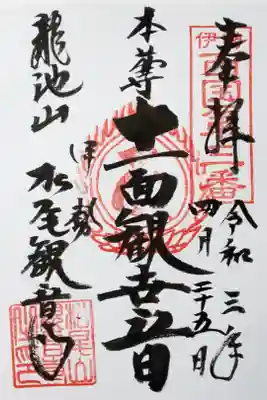 奉拝
令和三年
四月二十五日
本尊
十一面観世音
伊勢
水尾観音
龍池山